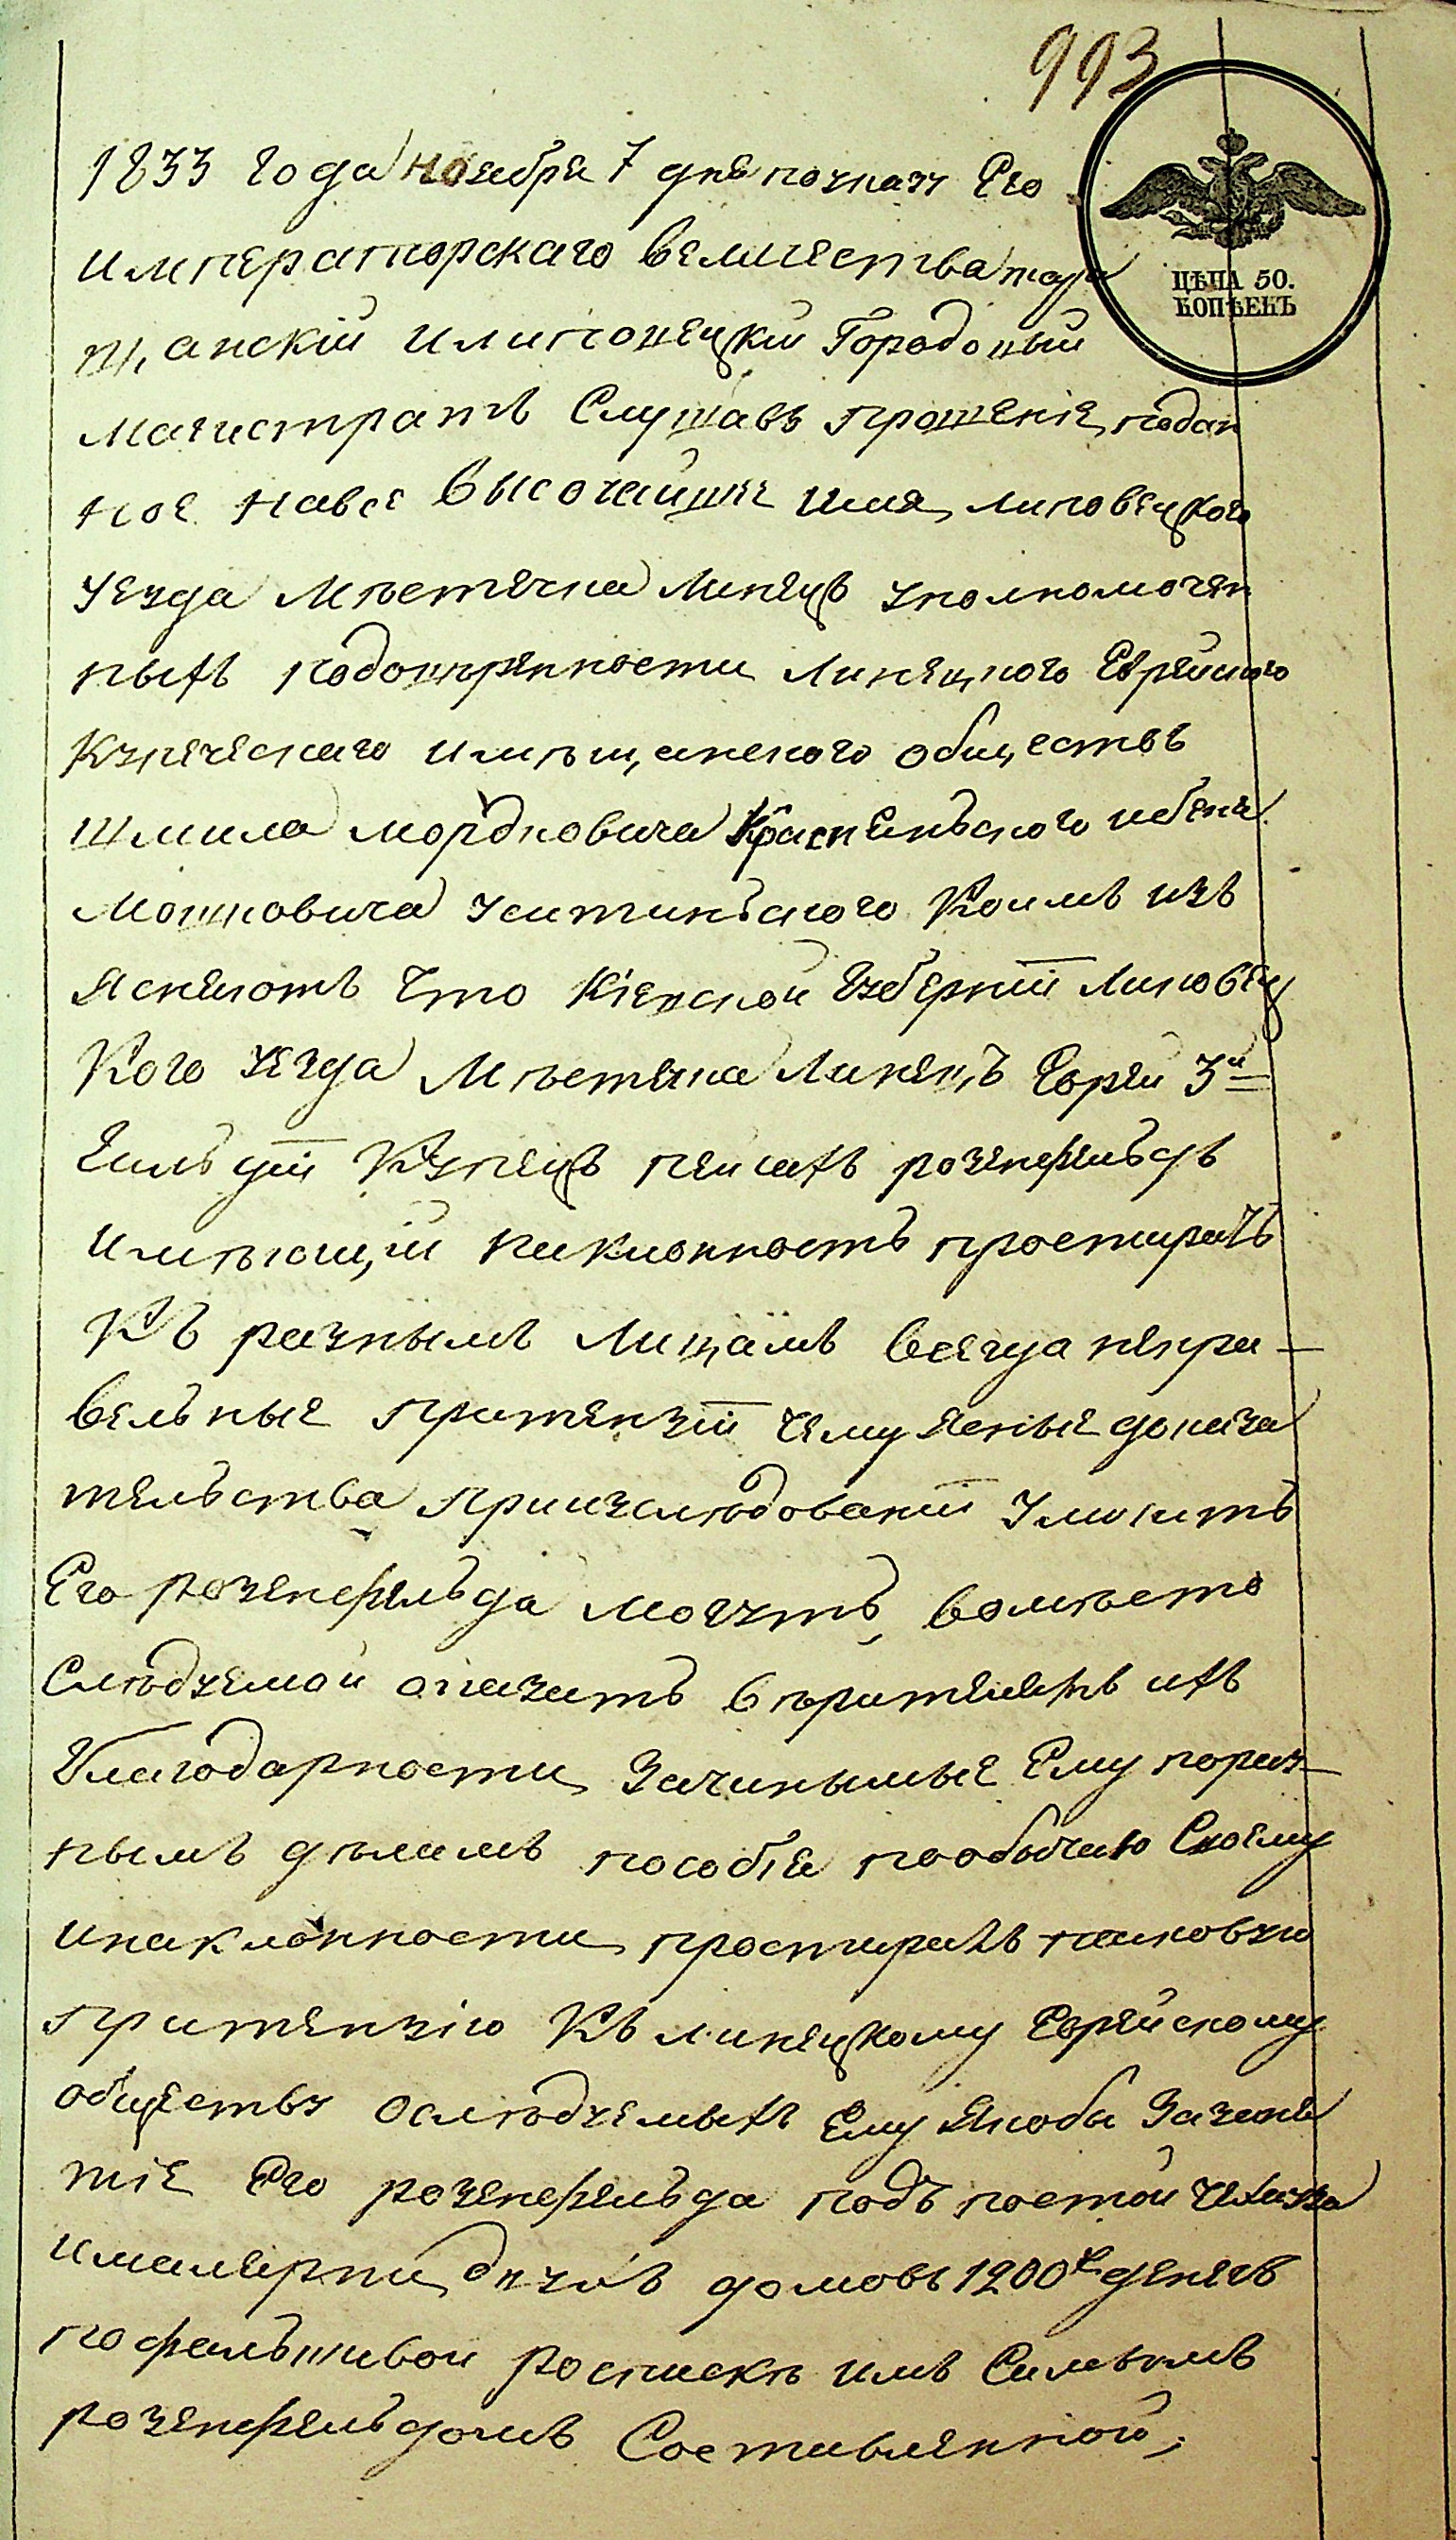 993
ЦѢНА 50.
КОПѢЕКЪ
1833 года ноября 7 дня поуказу Его
императорскаго величества тара
щанскій илиповецкій Городовый
магистратъ Слушавъ прошеніе, подан
ное навсе высочайшее имя, липовецкого
уезда мѣстечка Линецъ уполномочен
ныхъ подовѣренности Линецкого Еврейского
Купеческаго имѣщанского обществъ
Шмила мордковича Краснянского ибена
Мошковича уситинского Коимъ изъ
ясняютъ что Кіевской Губерніи Липовец
Кого уезда мѣстечка Линецъ Еврей 3й
Гильдіи Купецъ пейсахъ розенфельдъ
имѣющій наклонность простирать
Къ разнымъ Лицамъ всегда непра-
вельные притензіи чему ясные доказа
тельства приизслѣдованіи уличить
Его розенфельда могутъ, вомѣсто
Слѣдуемой оказать вѣрителяхъ ихъ
благодарности, Зачинымые Ему пораз-
нымъ дѣламъ пособія пообычаю Своему
инаклонности, простираетъ таковую
притензію Къ линецкому Еврейскому
обществу ослѣдуемыхъ Ему якобы Занятіе
тіе Его розенфельда подъ постой
домовъ 1200 денегъ
пофальшивой роспискѣ имъ Самымъ
розенфельдомъ Составленной;